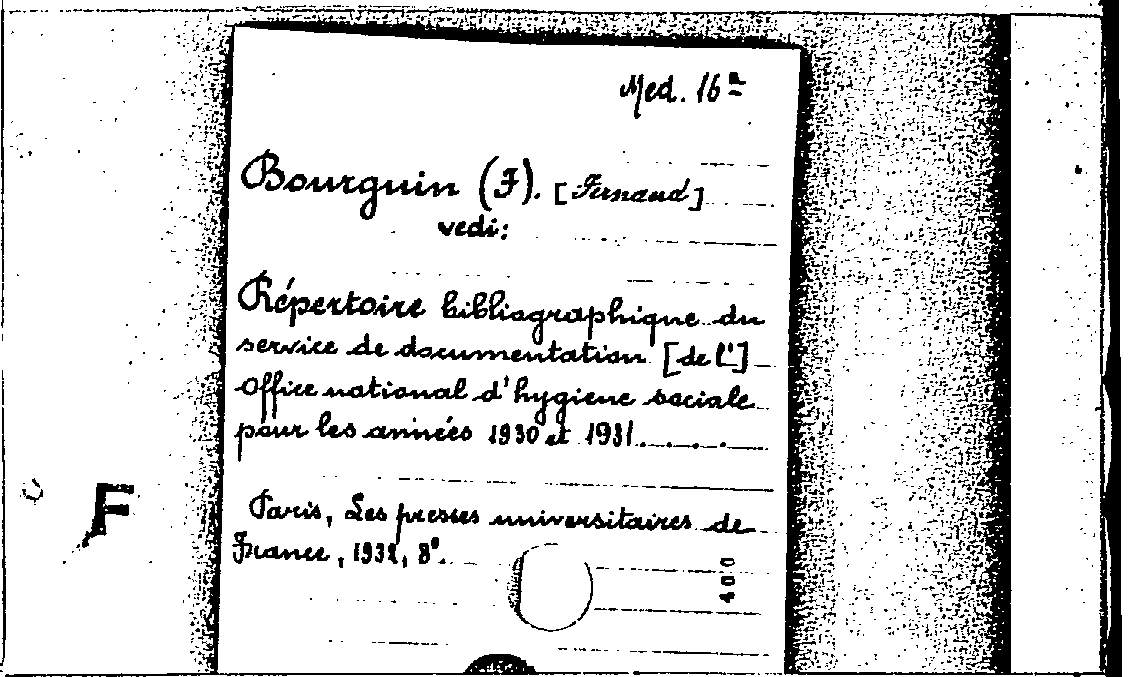 Med. 16ª
Bourguin (F). [Fernand]
vedi:
Répertoire bibliographique du
service de documentation [de l']
Office national d'hygiene sociale
pour les années 1930 et 1931.......
Paris, Les presses universitaires de
France, 1932, 8°.
400
F